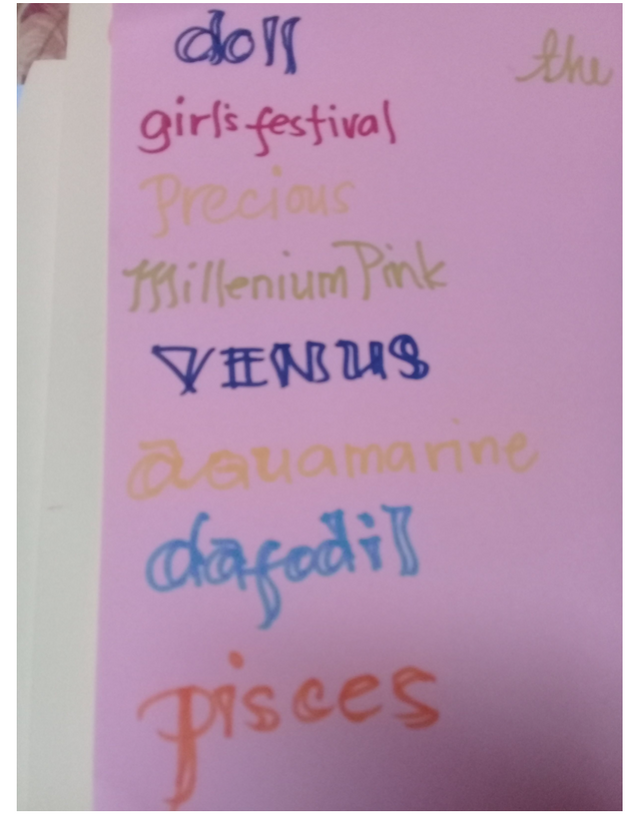 doll
the
girl's festival
Precious
Millenium Pink
VENUS
aquamarine
dafodil
pisces